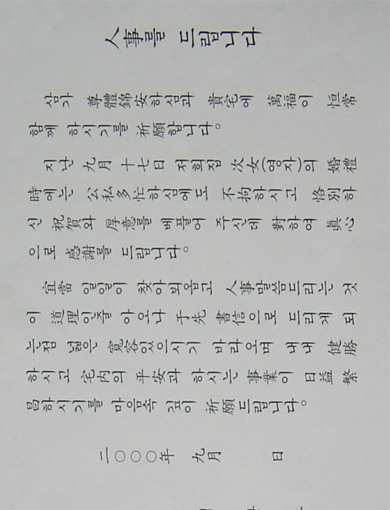 人事를 드립니다
삼가 尊體錦安하심과 貴宅에 萬福이 恒常
함께 하시기를 祈願합니다。
지난 九月 十七日 저희집 次女(영자)의 婚禮
時에는 公私多忙하심에도 不拘하시고 恪別하
신 祝賀와 厚意를 베풀어 주신데 對하여 眞心
으로 感謝를 드립니다。
宜當 일일이 찾아뵈옵고 人事말씀드리는 것
이 道理인줄 아오나 于先 書信으로 드리게 되
는점 넓은 寬容있으시기 바라오며 내내 健勝
하시고 宅內의 平安과 하시는 事業이 日益 繁
昌하시기를 마음속 깊이 祈願 드립니다。
二○○○年 九月 日